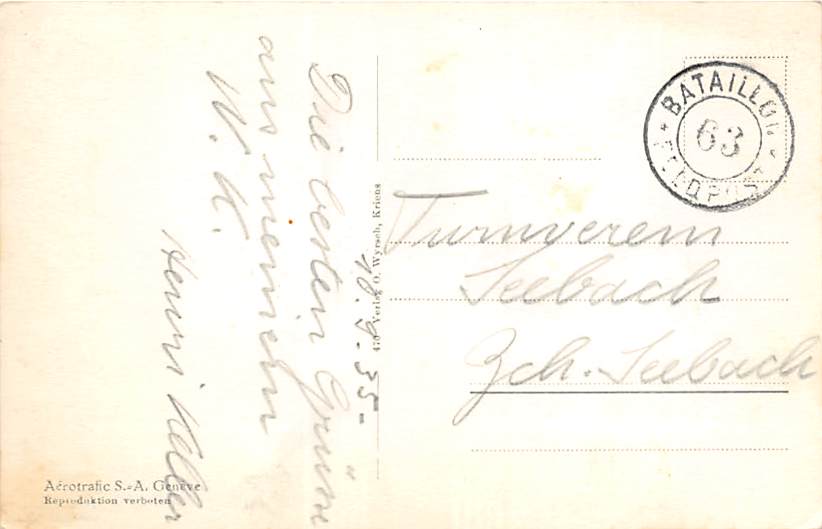 18. 9. 35
Die besten Grüsse
aus meinem
W. K.
Henri Keller
BATAILLON
63
FELDPOST
Turnverein
Seebach
Zch.-Seebach
Verlag O. Wyrsch, Kriens
Aérotrafic S.-A. Genève
Reproduktion verboten